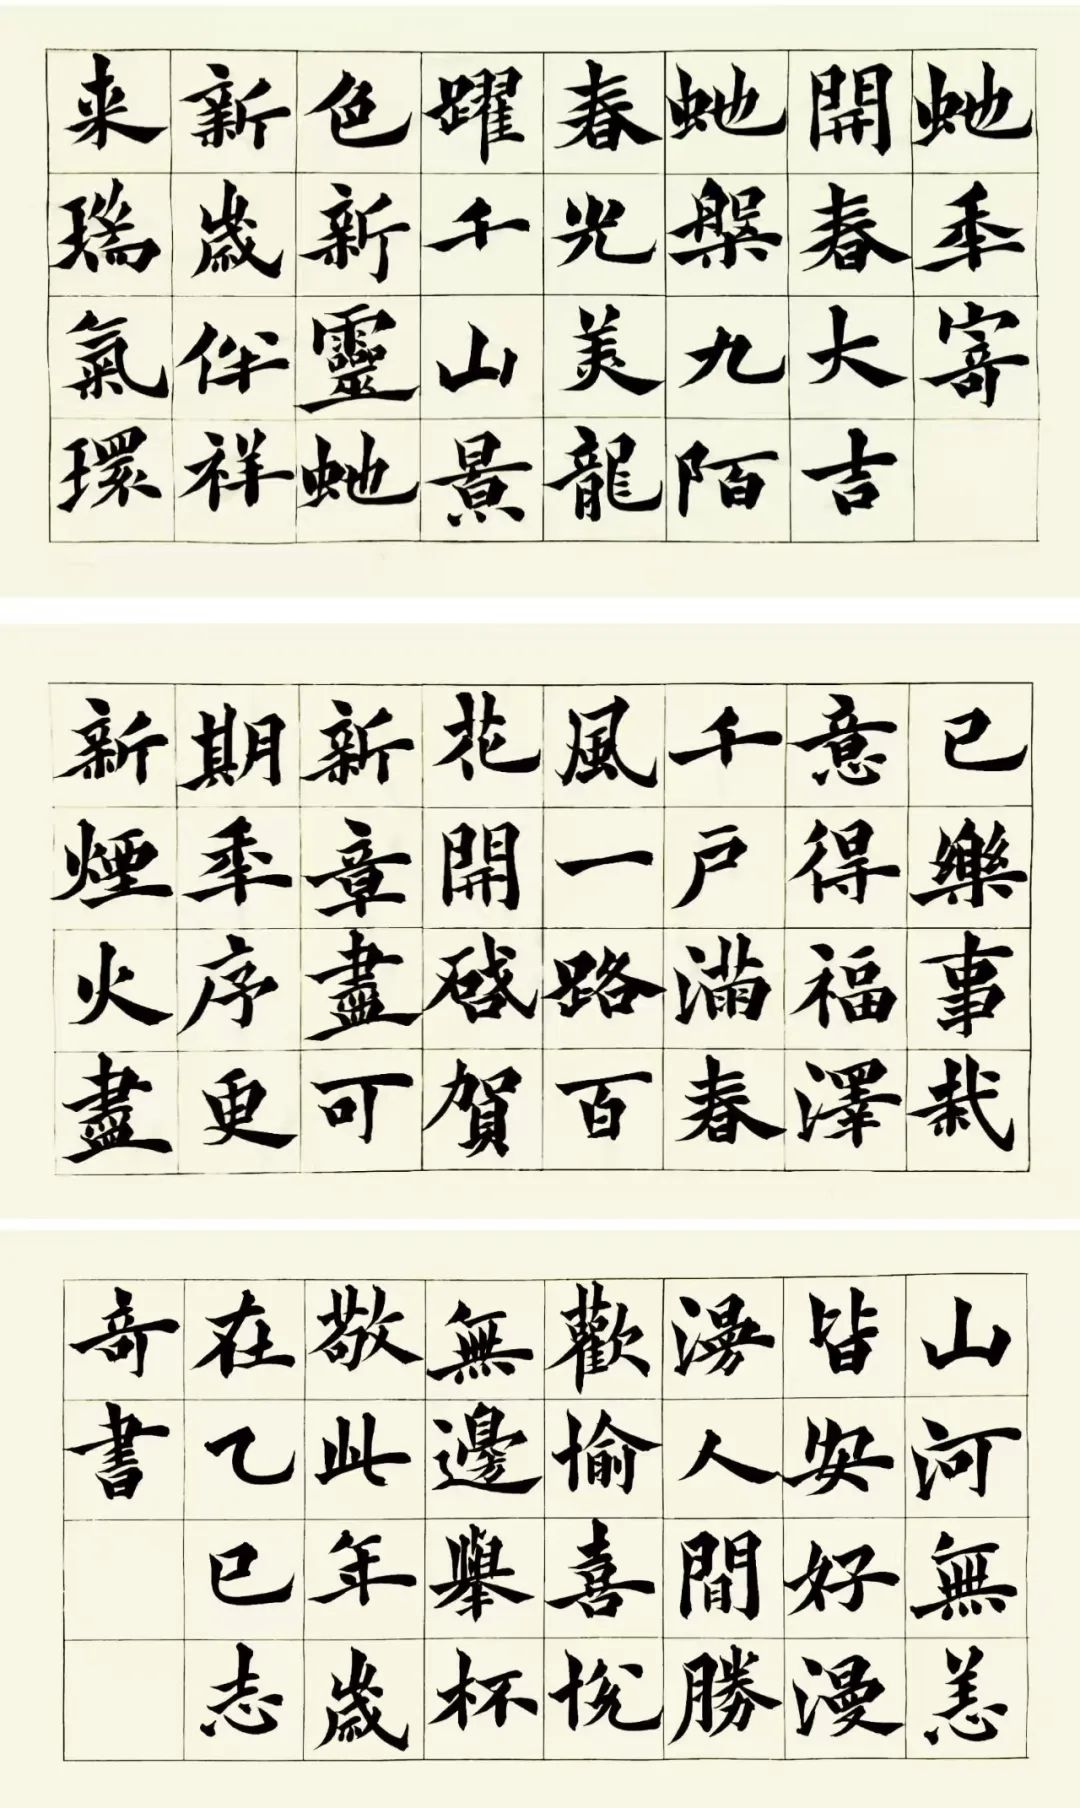 虵秊寄
開春大吉
虵槃九陌
春光美龍
躍千山景
色新靈虵
新歲伴祥
来瑞氣環
已樂事栽
意得福澤
千戶滿春
風一路百
花開啓賀
新章盡可
期秊序更
新煙火盡
山河無恙
皆安好漫
漫人間勝
歡愉喜悅
無邊舉杯
敬此年歲
在乙巳志
奇書